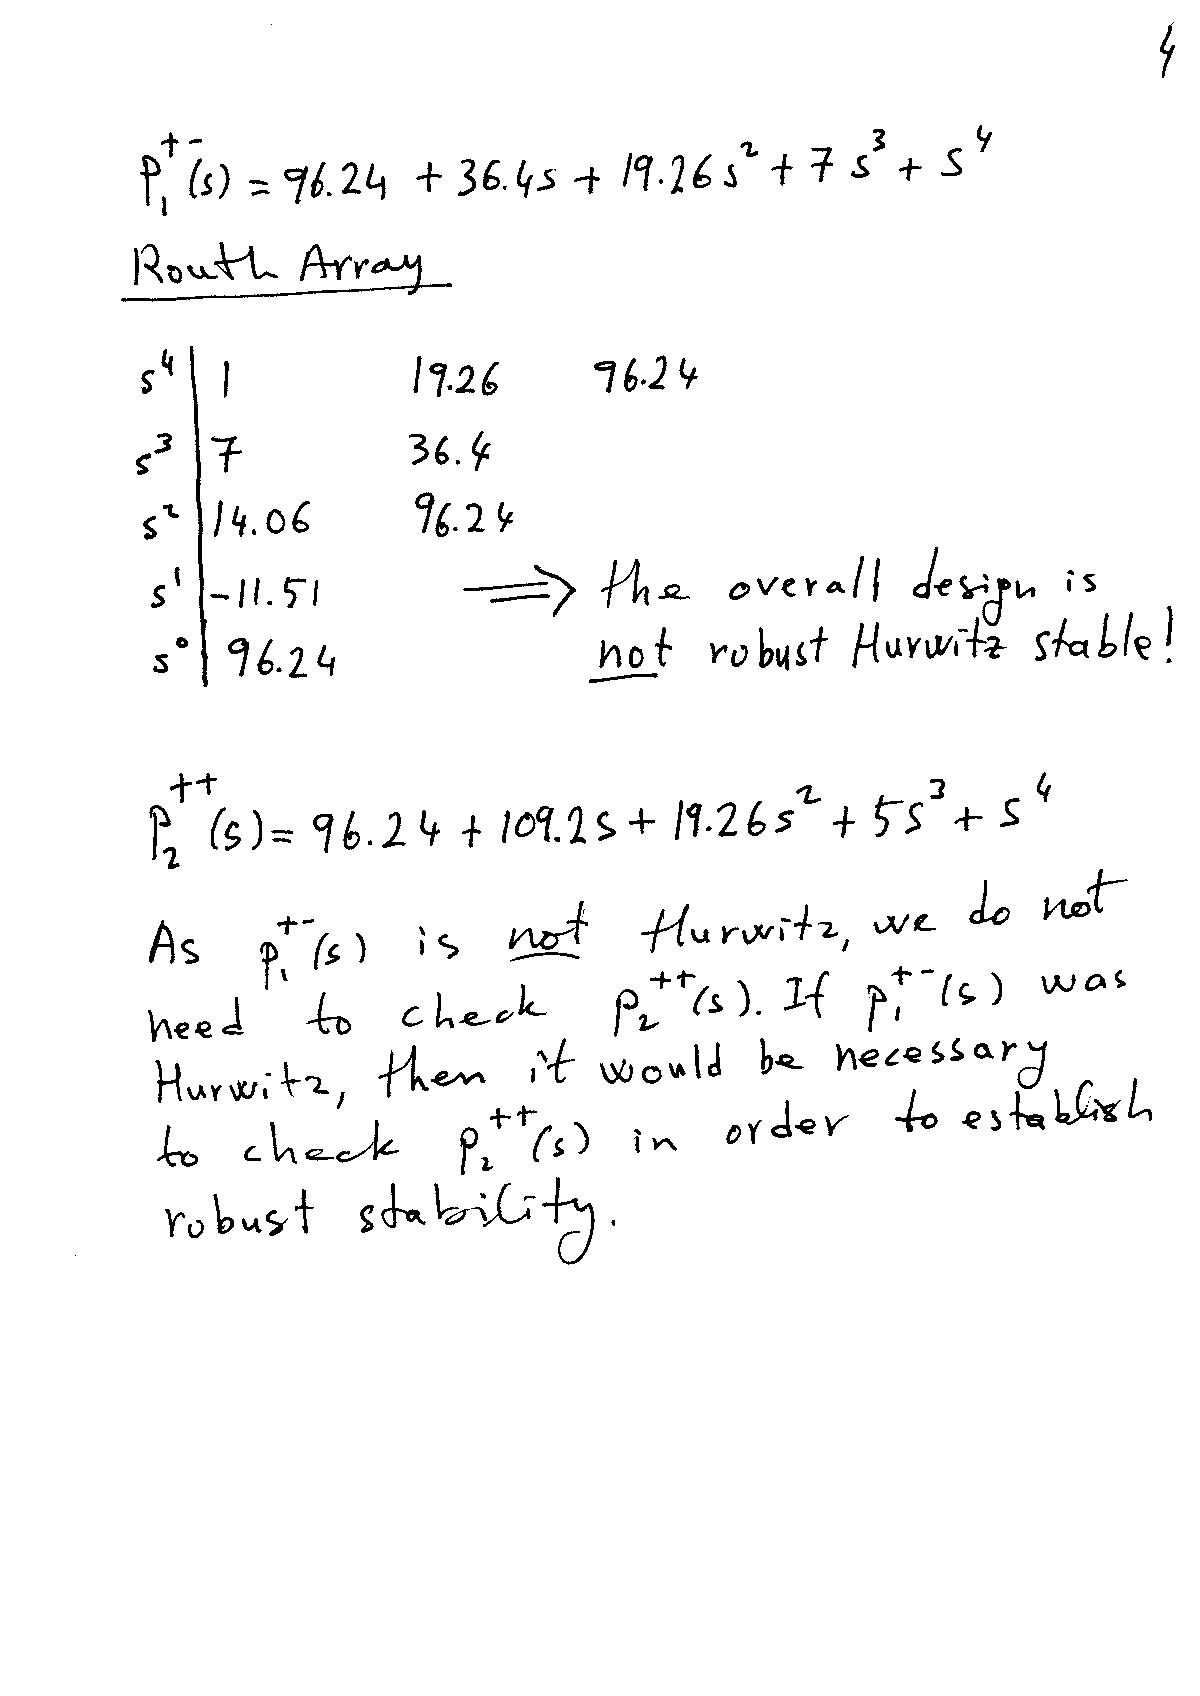 4
p₁⁺⁻(s) = 96.24 + 36.4s + 19.26s² + 7s³ + s⁴
Routh Array
s⁴ | 1 19.26 96.24
s³ | 7 36.4
s² | 14.06 96.24
s¹ | -11.51 ⟹ the overall design is
s⁰ | 96.24 not robust Hurwitz stable!
p₂⁺⁺(s) = 96.24 + 109.2s + 19.26s² + 5s³ + s⁴
As p₁⁺⁻(s) is not Hurwitz, we do not
need to check p₂⁺⁺(s). If p₁⁺⁻(s) was
Hurwitz, then it would be necessary
to check p₂⁺⁺(s) in order to establish
robust stability.